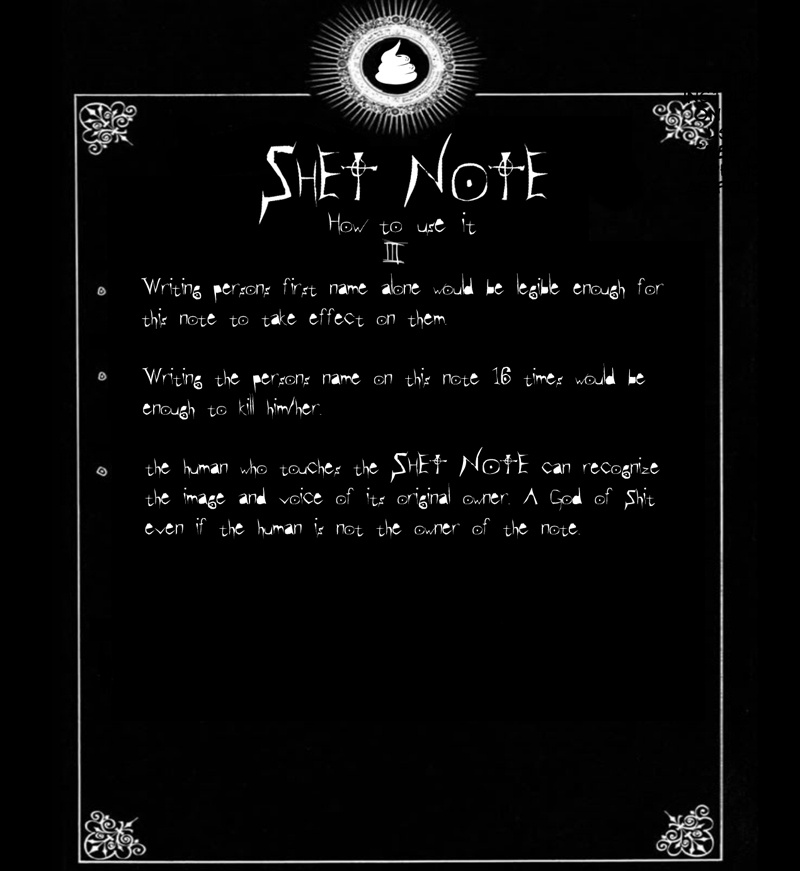 SHET NOTE
How to use it
III
Writing persons first name alone would be legible enough for
this note to take effect on them
Writing the persons name on this note 16 times would be
enough to kill him/her.
the human who touches the SHET NOTE can recognize
the image and voice of its original owner. A God of Shit
even if the human is not the owner of the note.